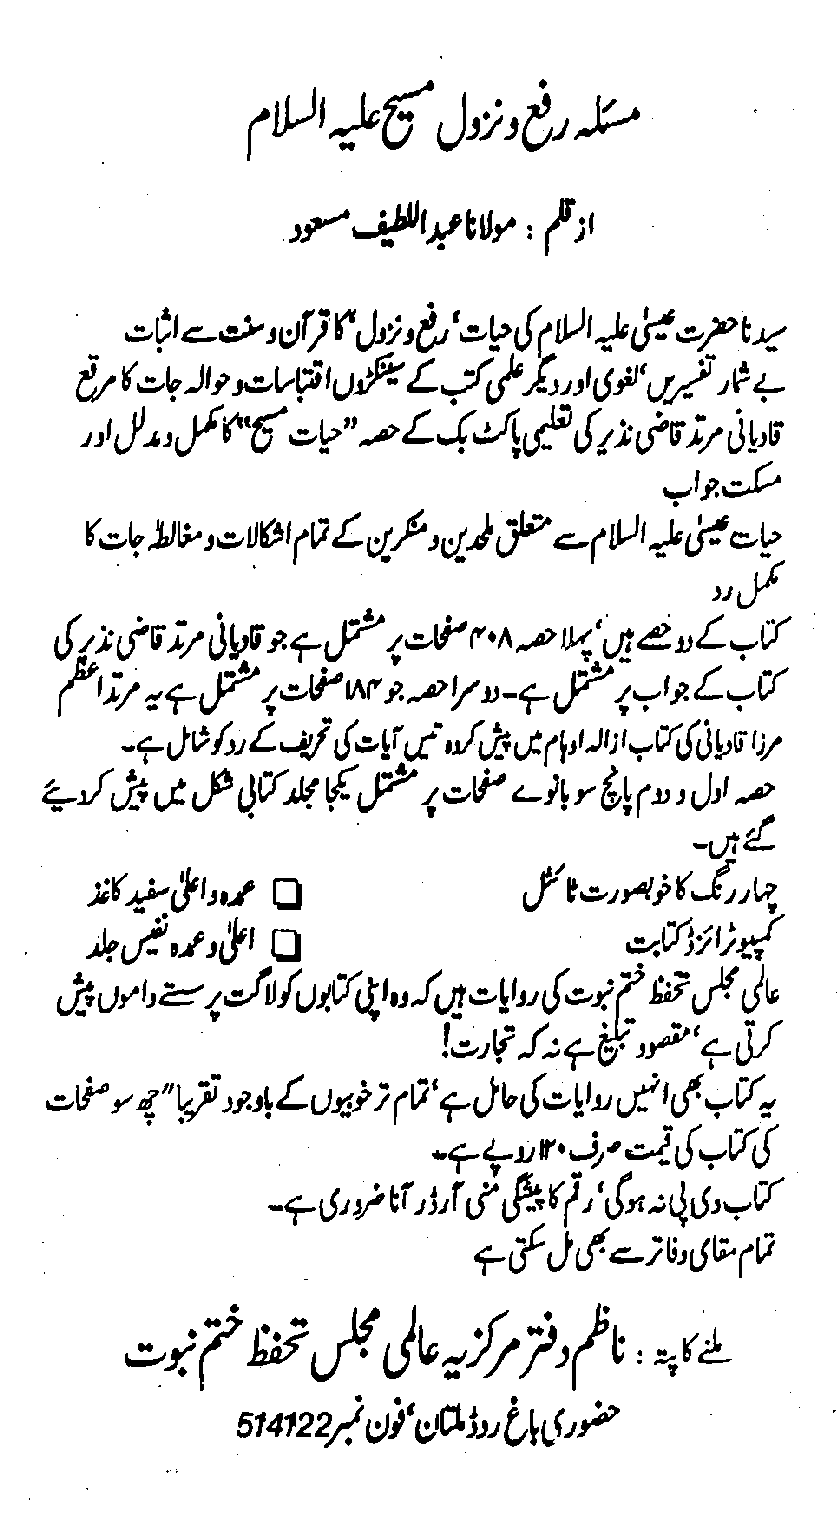 مسئلہ رفع و نزول مسیح علیہ السلام
از قلم : مولانا عبداللطیف مسعود
سیدنا حضرت عیسیٰ علیہ السلام کی حیات‘ رفع و نزول‘ کا قرآن و سنت سے اثبات
بے شمار تفسیریں‘ لغوی اور دیگر علمی کتب کے سینکڑوں اقتباسات و حوالہ جات کا مرقع
قادیانی مرتد قاضی نذیر کی تعلیمی پاکٹ بک کے حصہ ”حیات مسیح“ کا مکمل و مدلل اور
مسکت جواب
حیات عیسیٰ علیہ السلام سے متعلق ملحدین و منکرین کے تمام اشکالات و مغالطہ جات کا
مکمل رد
کتاب کے دو حصے ہیں‘ پہلا حصہ ۴۰۸ صفحات پر مشتمل ہے جو قادیانی مرتد قاضی نذیر کی
کتاب کے جواب پر مشتمل ہے۔ دوسرا حصہ جو ۱۸۴ صفحات پر مشتمل ہے یہ مرتد اعظم
مرزا قادیانی کی کتاب ازالہ اوہام میں پیش کردہ تیس آیات کی تحریف کے رد کو شامل ہے۔
حصہ اول و دوم پانچ سو بانوے صفحات پر مشتمل یکجا مجلد کتابی شکل میں پیش کر دیئے
گئے ہیں۔
چہار رنگ کا خوبصورت ٹائٹل □ عمدہ و اعلیٰ سفید کاغذ
کمپیوٹرائزڈ کتابت □ اعلیٰ و عمدہ نفیس جلد
عالمی مجلس تحفظ ختم نبوت کی روایات ہیں کہ وہ اپنی کتابوں کو لاگت پر سستے داموں پیش
کرتی ہے‘ مقصود تبلیغ ہے نہ کہ تجارت!
یہ کتاب بھی انہیں روایات کی حامل ہے‘ تمام تر خوبیوں کے باوجود تقریبا" چھ سو صفحات
کی کتاب کی قیمت صرف ۱۲۰ روپے ہے۔
کتاب وی پی نہ ہوگی‘ رقم کا پیشگی منی آرڈر آنا ضروری ہے۔
تمام مقامی دفاتر سے بھی مل سکتی ہے
ملنے کا پتہ : ناظم دفتر مرکزیہ عالمی مجلس تحفظ ختم نبوت
حضوری باغ روڈ ملتان‘ فون نمبر 514122